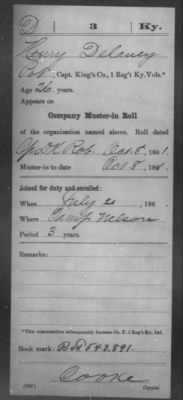 D 3 Ky.
Henry Delaney
Pvt., Capt. King's Co., 1 Reg't Ky. Vols.*
Age 26 years.
Appears on
Company Muster-in Roll
of the organization named above. Roll dated
Camp Dk. Rob. Oct. 8, 1861.
Muster-in to date Oct 8, 1861.
Joined for duty and enrolled:
When July 20, 186 .
Where Camp Nelson
Period 3 years.
Remarks:
*This organization subsequently became Co. F, 1 Reg't Ky. Inf.
Book mark:
Cooke
Copyist.